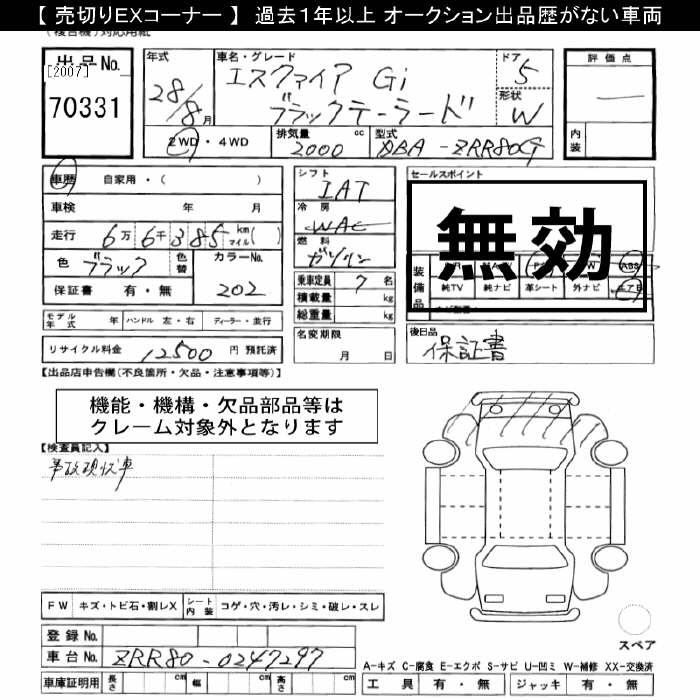 【 売切りEXコーナー 】 過去1年以上 オークション出品歴がない車両
(複合機)対応用紙
出品No. [2007] 70331
年式 28/8月
車名・グレード エスクァイア Gi ブラックテーラード
ドア 5
形状 W
評価点 —
内装
2WD・4WD
排気量 2000 cc
型式 DBA-ZRR80G
車歴 自家用・( )
車検 年 月
走行 6万6千385 km マイル( )
色 ブラック 色替 カラーNo. 202
保証書 有・無
シフト IAT
冷房 WAC
燃料 ガソリン
乗車定員 7名
積載量 kg
総重量 kg
セールスポイント
無効
装備品 ABS
純TV 純ナビ 革シート 外ナビ エアB
モデル年式 年 ハンドル 左・右 ディーラー・並行
リサイクル料金 12500 円 預託済
名変期限 月 日
後日品 保証書
【出品店申告欄(不良箇所・欠品・注意事項等)】
機能・機構・欠品部品等は
クレーム対象外となります
【検査員記入】
事故現状車
FW キズ・トビ石・割レX シート内装 コゲ・穴・汚レ・シミ・破レ・スレ
登録No.
車台No. ZRR80-0247297
車庫証明用 長さ cm 幅 cm 高さ cm
スペア
A-キズ C-腐食 E-エクボ S-サビ U-凹ミ W-補修 XX-交換済
工具 有・無 ジャッキ 有・無